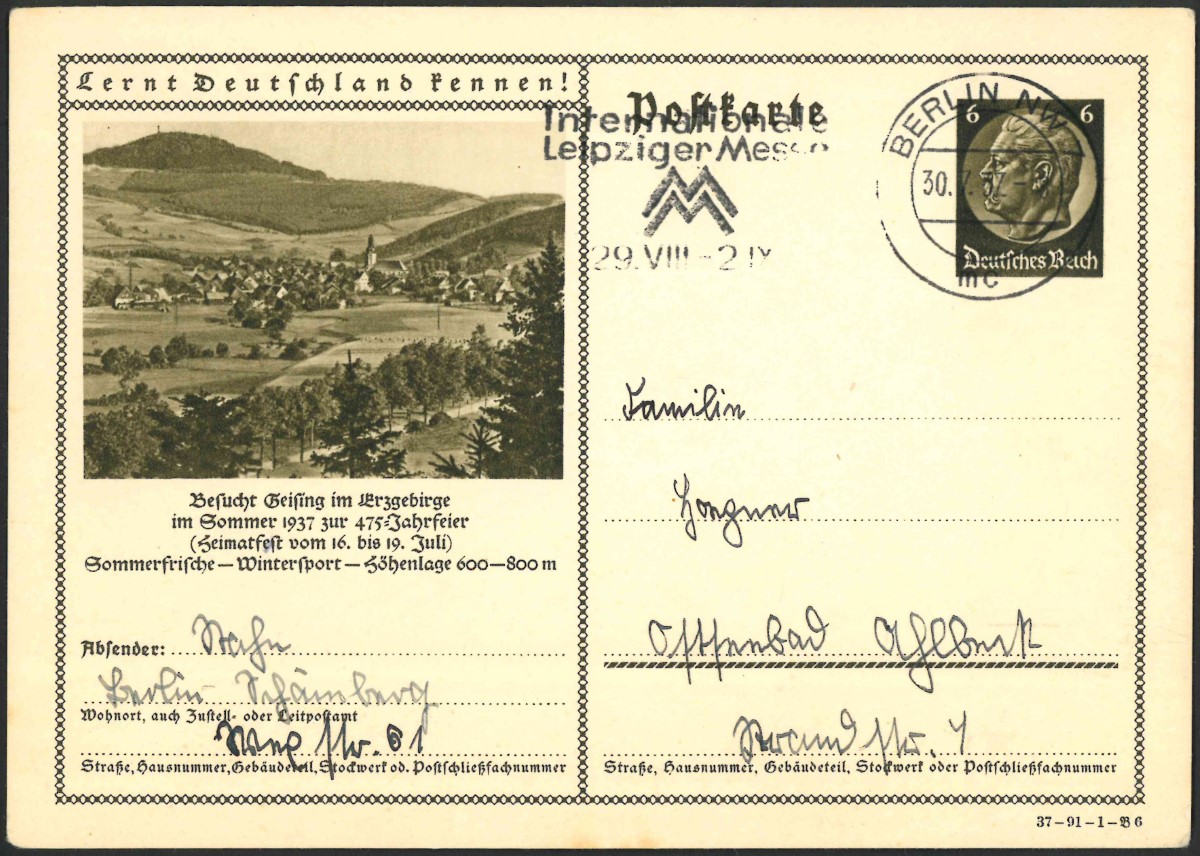 Lernt Deutschland kennen!
Besucht Geising im Erzgebirge
im Sommer 1937 zur 475-Jahrfeier
(Heimatfest vom 16. bis 19. Juli)
Sommerfrische — Wintersport — Höhenlage 600—800 m
Absender:
Berlin Schöneberg
Wohnort, auch Zustell- oder Leitpostamt
str. 61
Straße, Hausnummer, Gebäudeteil, Stockwerk od. Postschließfachnummer
Postkarte
Internationale
Leipziger Messe
29. VIII - 2 IX
BERLIN NW
30.7.37
mc
6 6
Deutsches Reich
Familie
Hoegner
Ostseebad Ahlbeck
Strandstr. 4
Straße, Hausnummer, Gebäudeteil, Stockwerk oder Postschließfachnummer
37-91-1-B6